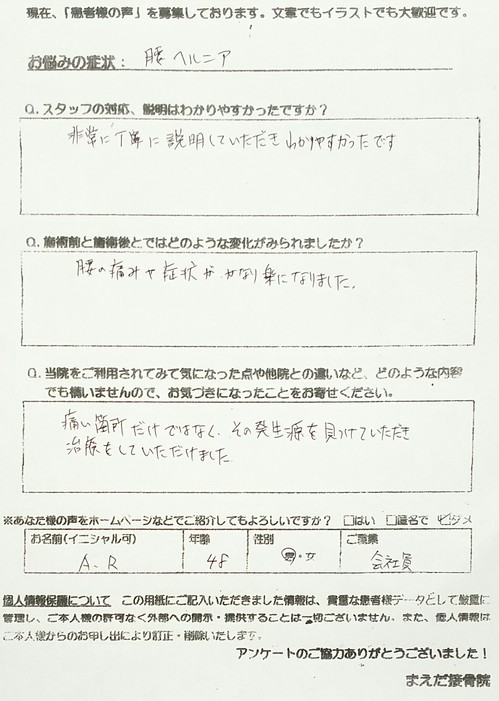 現在、「患者様の声」を募集しております。文章でもイラストでも大歓迎です。
お悩みの症状: 腰ヘルニア
Q.スタッフの対応、説明はわかりやすかったですか？
非常に丁寧に説明していただきわかりやすかったです
Q.施術前と施術後とではどのような変化がみられましたか？
腰の痛みや症状が、かなり楽になりました。
Q.当院をご利用されてみて気になった点や他院との違いなど、どのような内容
でも構いませんので、お気づきになったことをお寄せください。
痛い箇所だけではなく、その発生源を見つけていただき
治療をしていただけました
※あなた様の声をホームページなどでご紹介してもよろしいですか？ □はい □匿名で ☑ダメ
お名前(イニシャル可) 年齢 性別 ご職業
A.R 48 男・女 会社員
個人情報保護について この用紙にご記入いただきました情報は、貴重な患者様データとして厳重に
管理し、ご本人様の許可なく外部への開示・提供することは一切ございません。また、個人情報は
ご本人様からのお申し出により訂正・削除いたします。
アンケートのご協力ありがとうございました！
まえだ接骨院